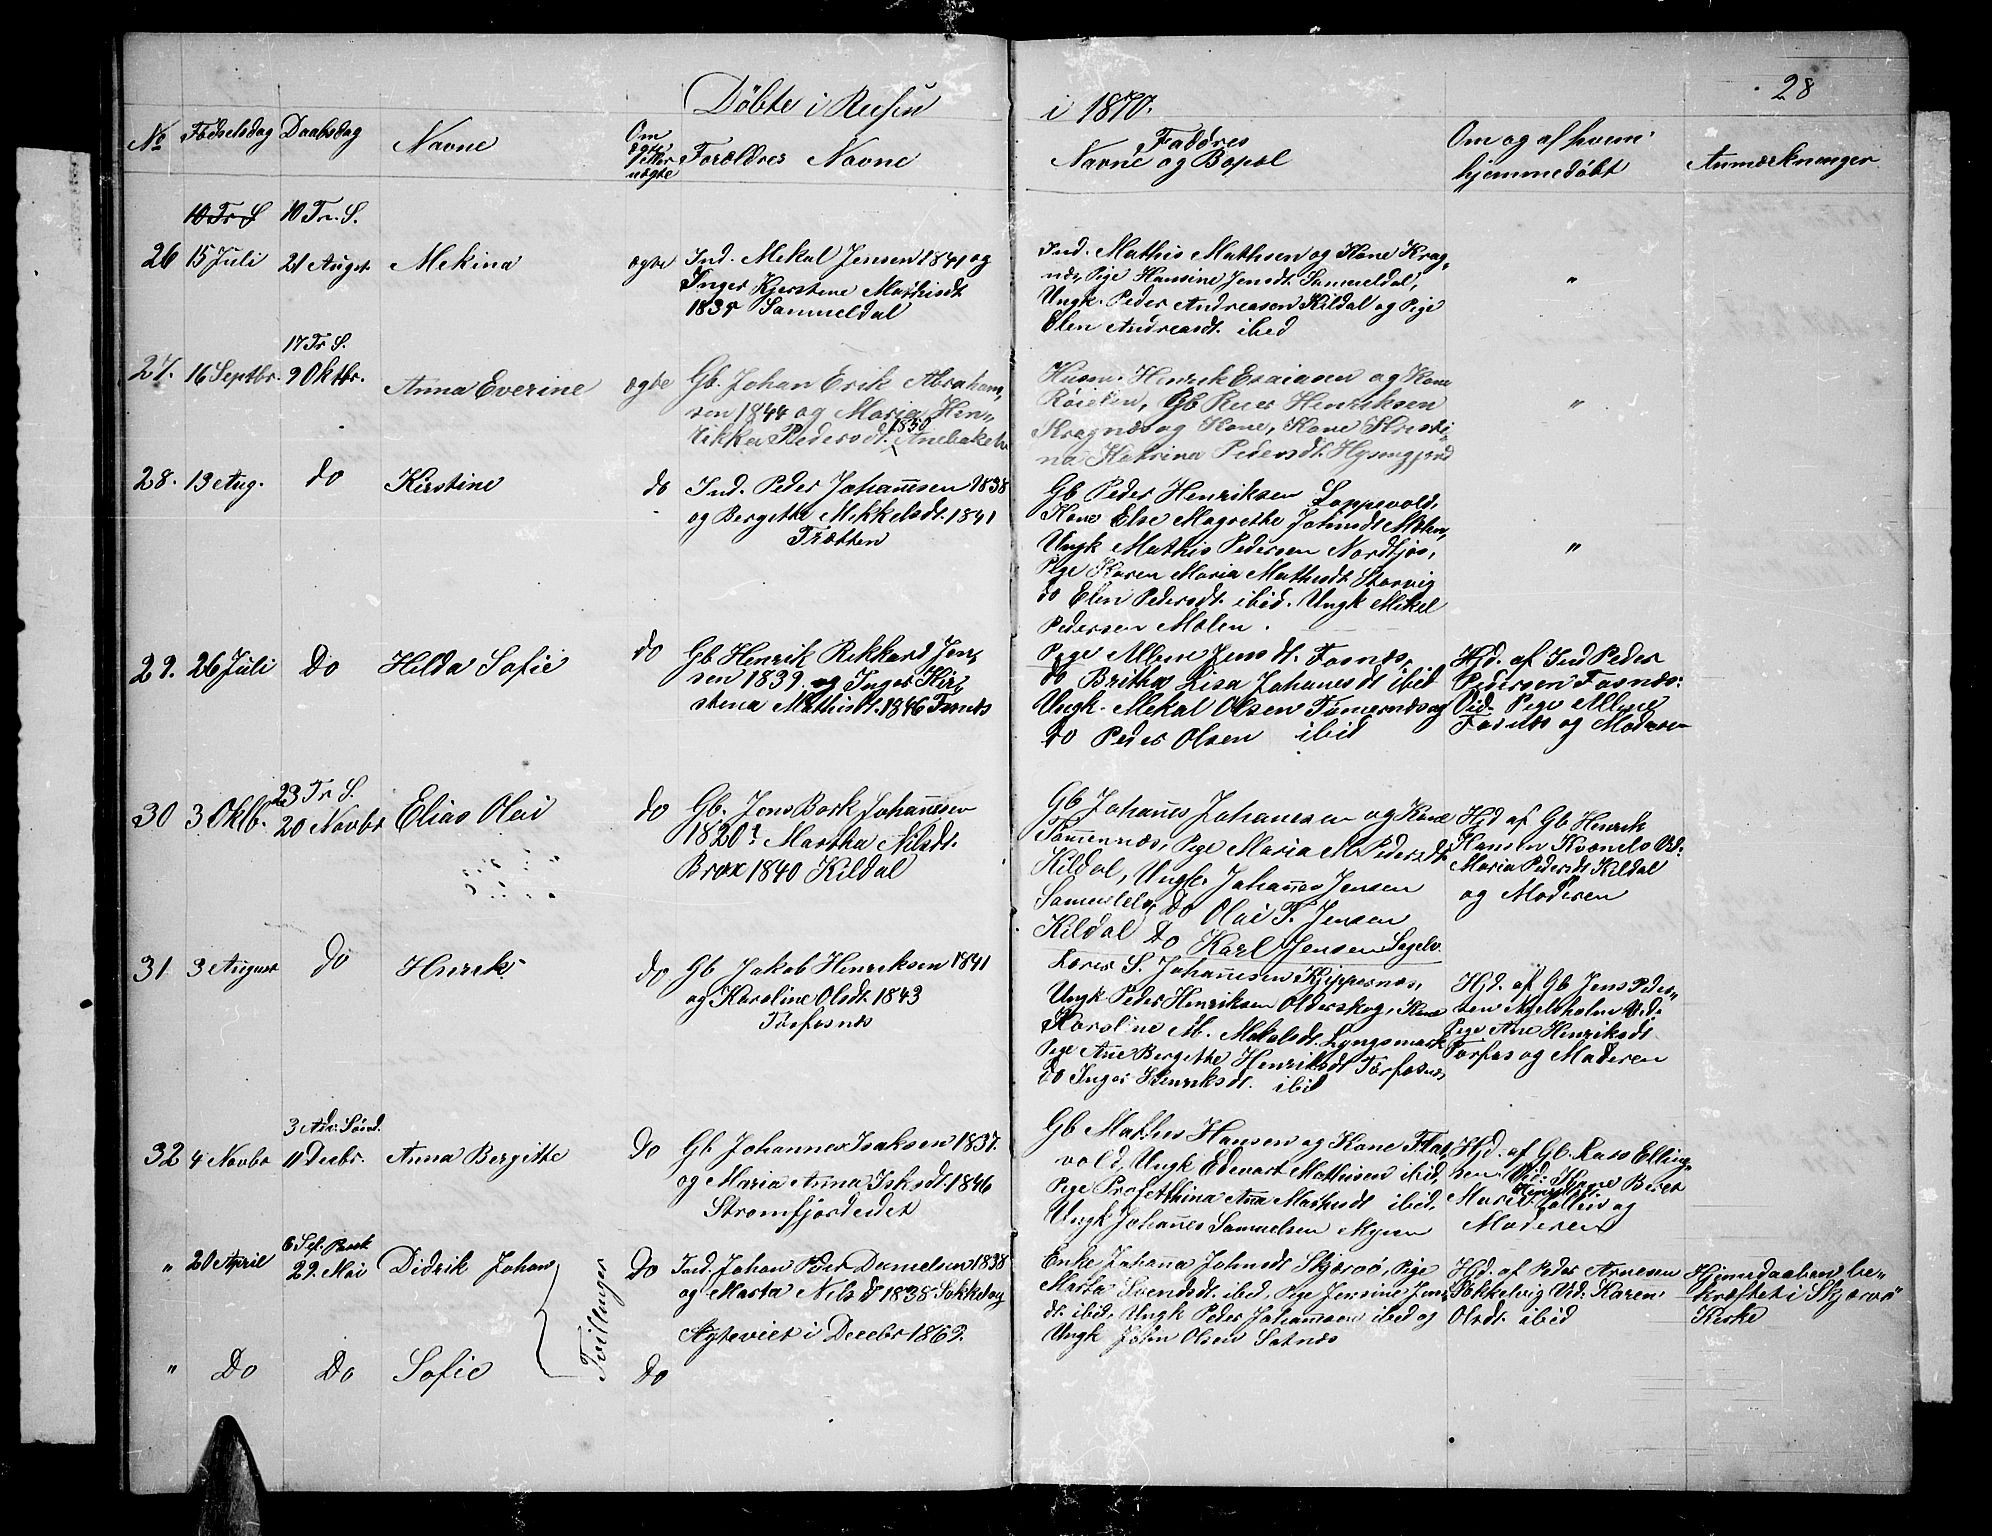 Döbte i Reisen
i 1870.
28
No Fødselsdag Daabsdag Navne Om ægte eller uægte Forældres Navne
Faddres Navne og Bopæl
Om og af hvem hjemmedøbt
Anmærkninger
10 Tr S 10 Tr. S.
26 15 Juli 21 Augst Mekina ægte Ind. Mekal Jensen 1841 og
Inger Kjerstine Mathisdt
1835 Sammeldal
Ind. Mathis Mathsen og Kone Krag-
næs, Pige Hansine Jensdt Sammeldal,
Ungk. Peder Andreasen Kildal og Pige
Elen Andreasdt. ibid
"
17 Tr S.
27. 16 Septbr. 9 Oktbr. Anna Everine ægte Gb. Johan Erik Abraham-
sen 1844 og Maria Hen-
rikka Pedersdt. 1850
Husm. Henrik Esaiasen og Kone
Røielen, Gb Reier Henriksen
Kragnæs og Kone, Kone Kristi-
na Katrina Pedersdt.
"
28. 13 Aug. do Kirstine do Ind. Peder Johannsen 1838
og Bergitte Mikkelsdt. 1841
Trætten
Gb Peder Henriksen Loppevold,
Kone Else Magrethe Johnsdt Molen,
Ungk Mathis Pedersen Nordfjos,
Pige Karen Maria Mathisdt Storvig
do Elen Pedersdt. ibid. Ungk Mikel
Pedersen Molen.
"
29. 26 Juli Do Hilda Sofie do Gb Henrik Rikkard Jen-
sen 1839 og Inger Kir-
stena Mathisdt. 1846 Fosnæs
Pige Allene Jensdt. Fosnæs,
do Britha Lisa Johanesdt ibid
Ungk. Mekal Olsen Tømernæs og
do Peder Olsen ibid
Hjd. af Ind Peder
Pedersen Fosnæs.
Vid. Pige Allene
Fosnæs og Moderen
23 Tr S.
30 3 Oktb. 20 Novbr Elias Olai do Gb. Jens Bark Johannesen
1820? Martha Nilsdt.
Brox 1840 Kildal
Gb Johanes Johanesen og Kone
Tømernæs, Pige Maria M. Pedersdt
Kildal, Ungk. Johannes Jensen
Samuelelv, Do Olai P. Jensen
Kildal Do Karl Jensen Sagelv.
Hjd af Gb Henrik
Hansen Kvænelv Vid.
Maria Pedersdt Kildal
og Moderen
31 3 August do Henrik do Gb Jakob Henriksen 1841
og Karoline Olsdt. 1843
Torfosnæs
Lærer S. Johannesen Kjippernæs,
Ungk Peder Henriksen Olderskog, Kone
Karoline M. Mekalsdt. Lyngsmark
Pige Ane Bergitte Henriksdt Torfosnæs,
do Inger Henriksdt. ibid
Hjd. af Gb Jens Peder-
sen Angelholm Vid.
Pige Ane Henriksdt
Torfos og Moderen
3 Adv. Sønd.
32 4 Novbr 11 Decbr. Anna Bergitte Do Gb Johannes Isaksen 1837.
og Maria Anna Isksdt. 1846
Stromfjordeidet
Gb Mathis Hansen og Kone Flat-
vold, Ungk Edevart Mathisen ibid,
Pige Profethina Ana Mathisdt ibid,
Ungk Johannes Samuelsen Myren
Hjd. af Gb. Rass Elling-
sen Vid: Kone Beret
Moderen
6 S. e. Paask
" 20 April 29. Mai Didrik Johan Do Ind. Johan Peder Danielsen 1838
og Marta Nilsdt 1838 Sokkelvig
Ægteviet i Decebr 1869.
Tvillinger
Enke Johanna Johnsdt Skjærvø, Pige
Marta Svendsdt. ibid, Pige Jensine Jens-
dt. ibid, Ungk Peder Johannsen ibid og
Ungk John Olsen Satnæs
Hjd. af Peder Arnesen
Sokkelvig Vid. Karen
Olsdt. ibid
Hjemedaaben be-
kræftet i Skjærvø
Kirke
" Do Do Sofie Do